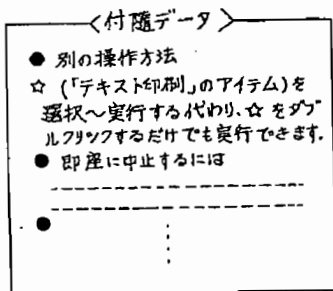 <付随データ>
● 別の操作方法
☆ (「テキスト印刷」のアイテム)を
選択〜実行する代わり、☆をダブ
ルクリックするだけでも実行できます.
● 即座に中止するには
●